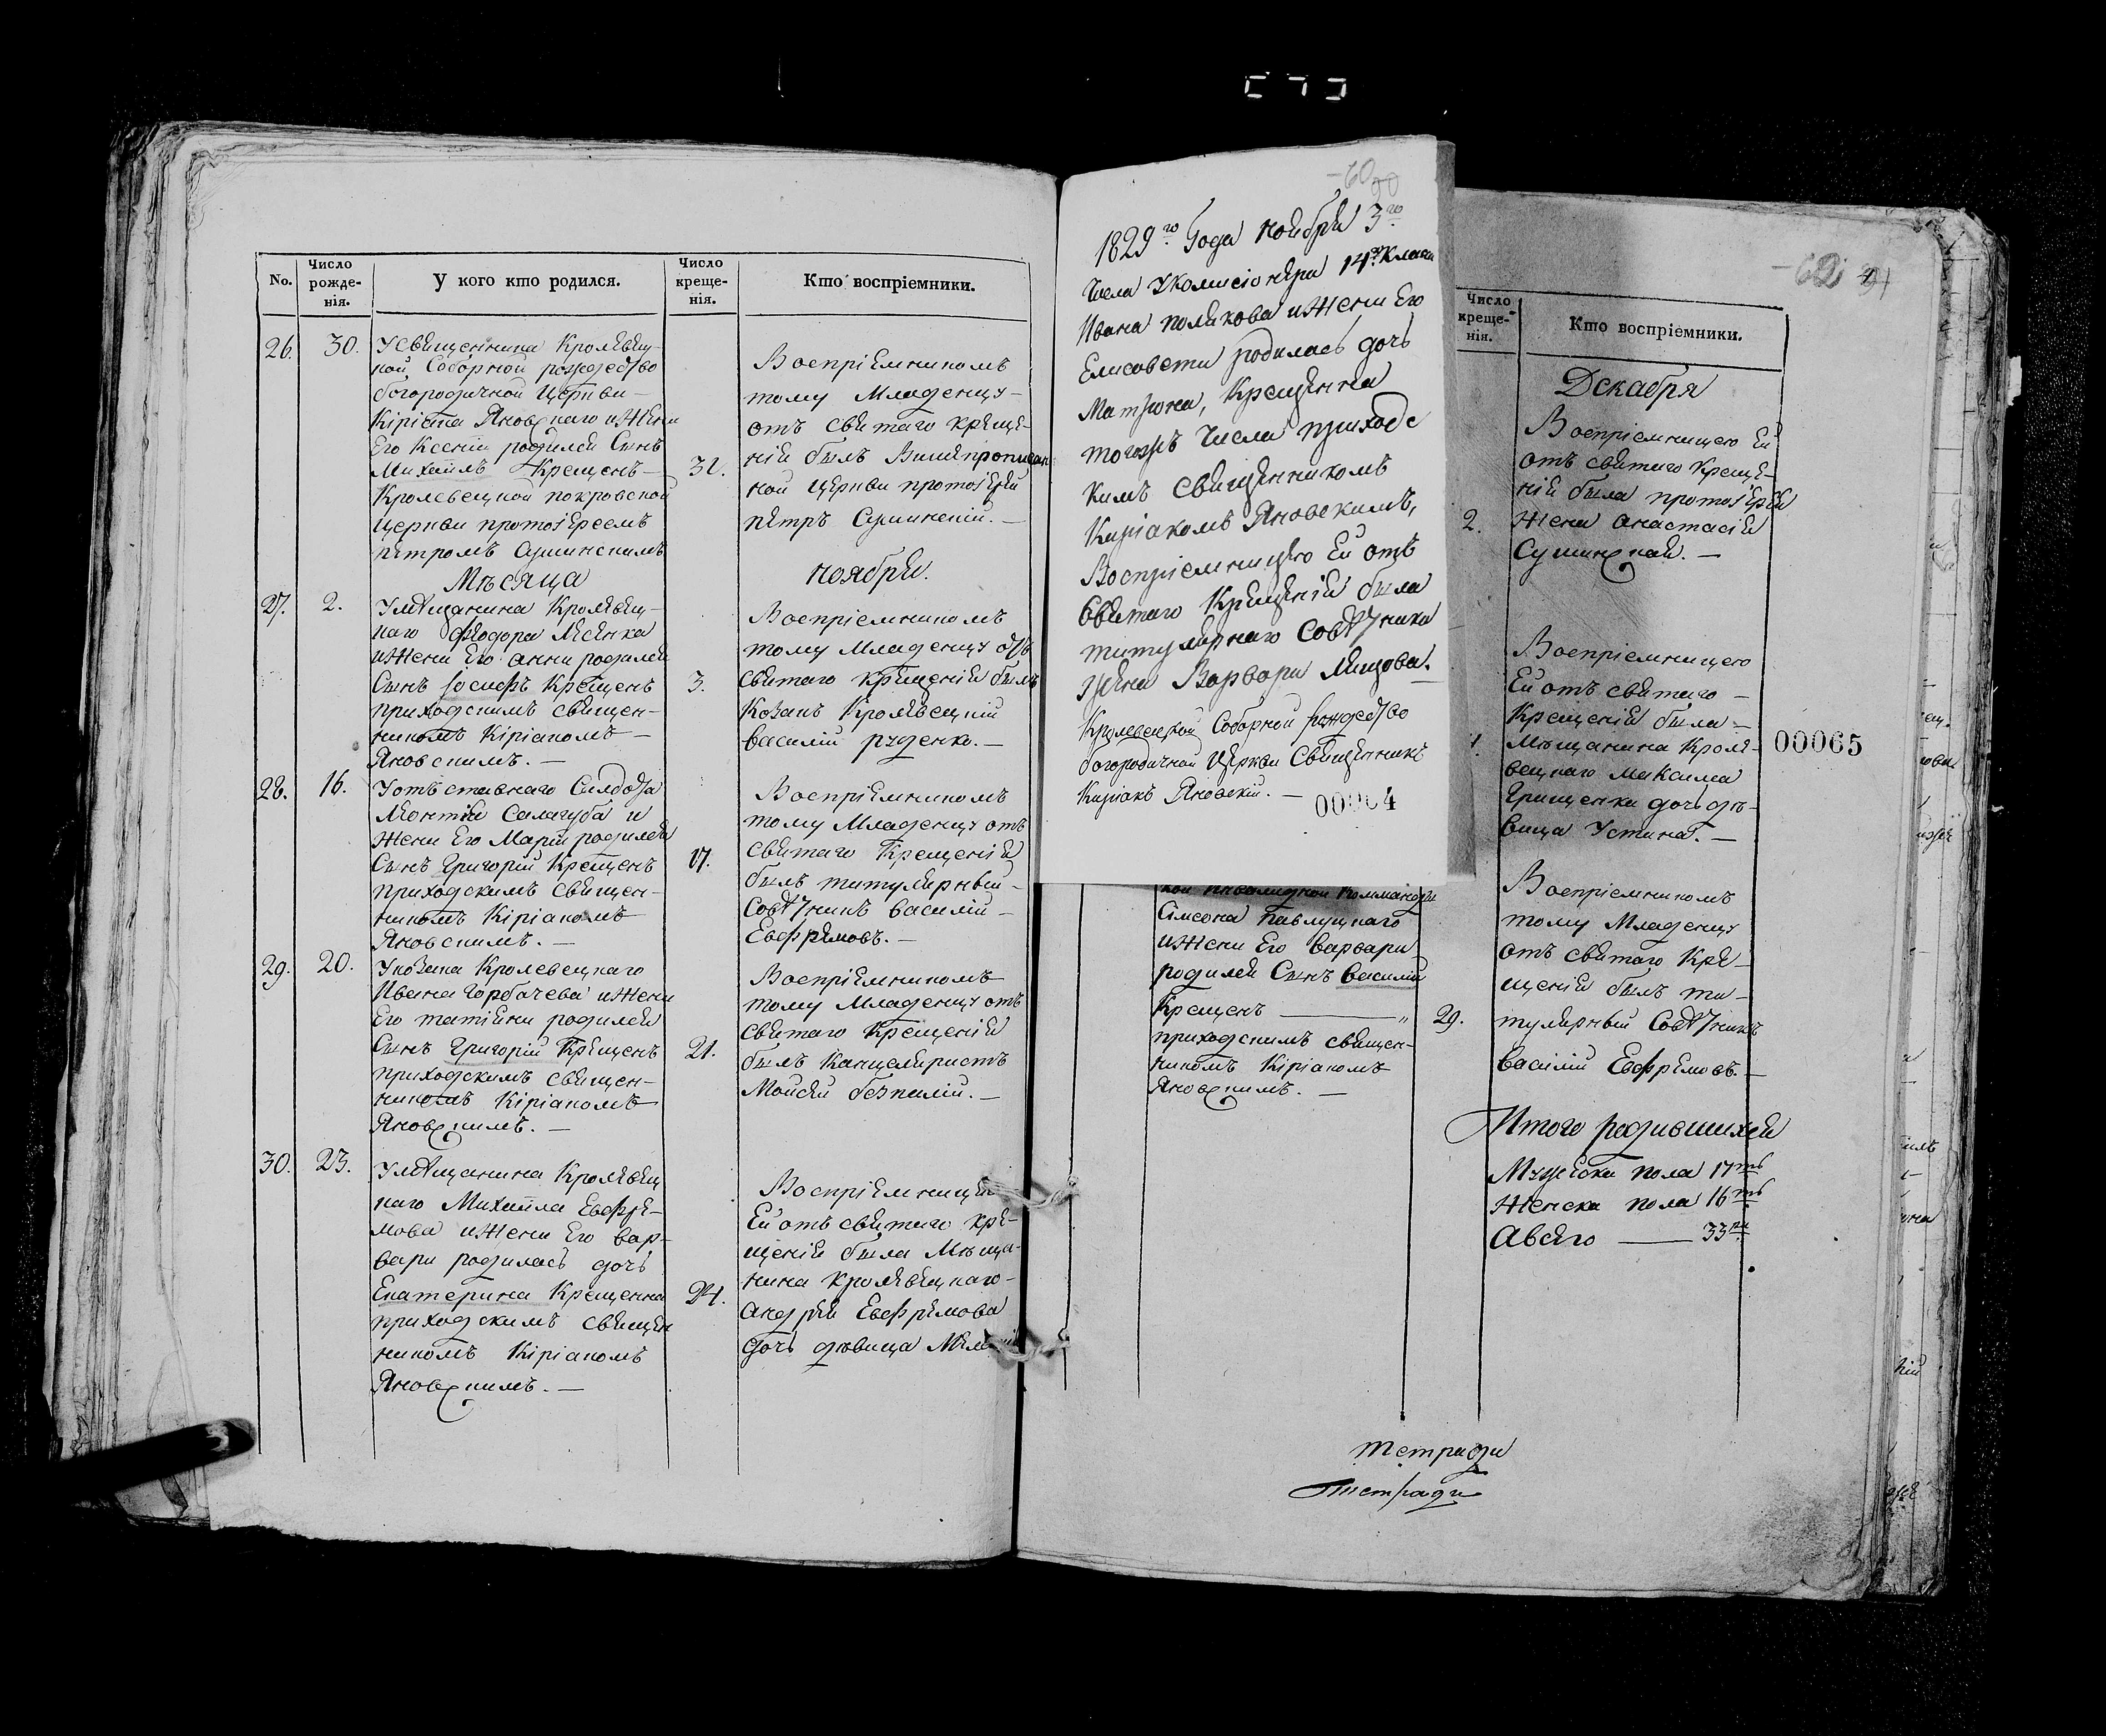 No.
Число рожде-нія.
У кого кто родился.
Число креще-нія.
Кто воспріемники.
26. 30.
У священника Кролевец-
кой Соборной рождество
богородичной Церкви -
Кіріака Яновскаго и жени
Его Ксеніи родился Сынъ
Михаилъ Крещенъ -
Кролевецкой покровской
Церкви протоіереемъ
петромъ Сушинскимъ
31.
Воспріемникомъ
тому Младенцу -
отъ святаго креще-
нія былъ Вишепрописан
ной Церкви протоіерей
петръ Сушинскій. -
Мѣсяца ноября.
27. 2.
У мѣщанина Кролевец-
каго Феодора
и жени Его анни родился
Сынъ Іосифъ Крещенъ
приходскимъ священ-
никомъ Кіріакомъ -
Яновскимъ. -
3.
Воспріемникомъ
тому Младенцу отъ
святаго крещенія былъ
Козакъ Кролевецкій
василій руденко. -
28. 16.
У отъставнаго Салдата
Леонтія Салагуба и
жени Его Маріи родился
Сынъ Григорій Крещенъ
приходскимъ священ-
никомъ Кіріакомъ
Яновскимъ. -
17.
Воспріемникомъ
тому Младенцу отъ
святаго Крещенія
былъ титулярный -
Совѣтникъ василій -
Евфремовъ. -
29. 20.
У козака Кролевецкаго
Ивана Горбачева и жени
Его татіяни родился
Сынъ Григорій Крещенъ
приходскимъ священ-
никомъ Кіріакомъ
Яновскимъ. -
21.
Воспріемникомъ
тому Младенцу отъ
святаго Крещенія
былъ Канцеляристъ
Моисей безпалій. -
30. 23.
У мѣщанина Кролевец
каго Михаила Евфре-
мова и жени Его вар-
вари родилась дочь
Екатерина Крещенна
приходскимъ священ
никомъ Кіріакомъ
Яновскимъ. -
24.
Воспріемницею
Ей отъ святаго кре-
щенія была Мѣща-
нина кролевецкаго -
андрея Евфремова
дочь дѣвица
60
90
1829го Года ноября 3го
Числа У комисіонера 14го Класа
Ивана полякова и жени Его
Елисавети родилась дочь
Матрона, Крещенна
тогожъ Числа приходс
кимъ священникомъ
Киріакомъ Яновскимъ,
Воспріемницею Ей отъ
Святаго Крещенія была
титулярнаго Совѣтника
жена Варвара
Кролевецкой Соборной рождество
богородичной Церкви Священникъ
Киріакъ Яновскій. -
00064
кой инвалидной комманди
Симеона павлуцкаго
и жени Его варвари
родился Сынъ василій
Крещенъ —— „
приходскимъ священ-
никомъ Кіріакомъ
Яновскимъ. -
Число креще-нія.
Кто воспріемники.
Декабря
2.
Воспріемницею Ей
отъ святаго Креще-
нія была протоіерея
жена анастасія
Сушинская. -
1.
Воспріемницею
Ей отъ святаго -
Крещенія была -
Мѣщанина Кроле-
вецкаго Максима
Грищенка дочь дѣ-
вица Устина. -
00065
29.
Воспріемникомъ
тому Младенцу
отъ святаго Кре-
щенія былъ ти-
тулярный Совѣтникъ
василій Евфремовъ. -
Итого родившихся
Мужеска пола 17ть
Женска пола 16ть
А всего —— 33ри
тетради
тетради